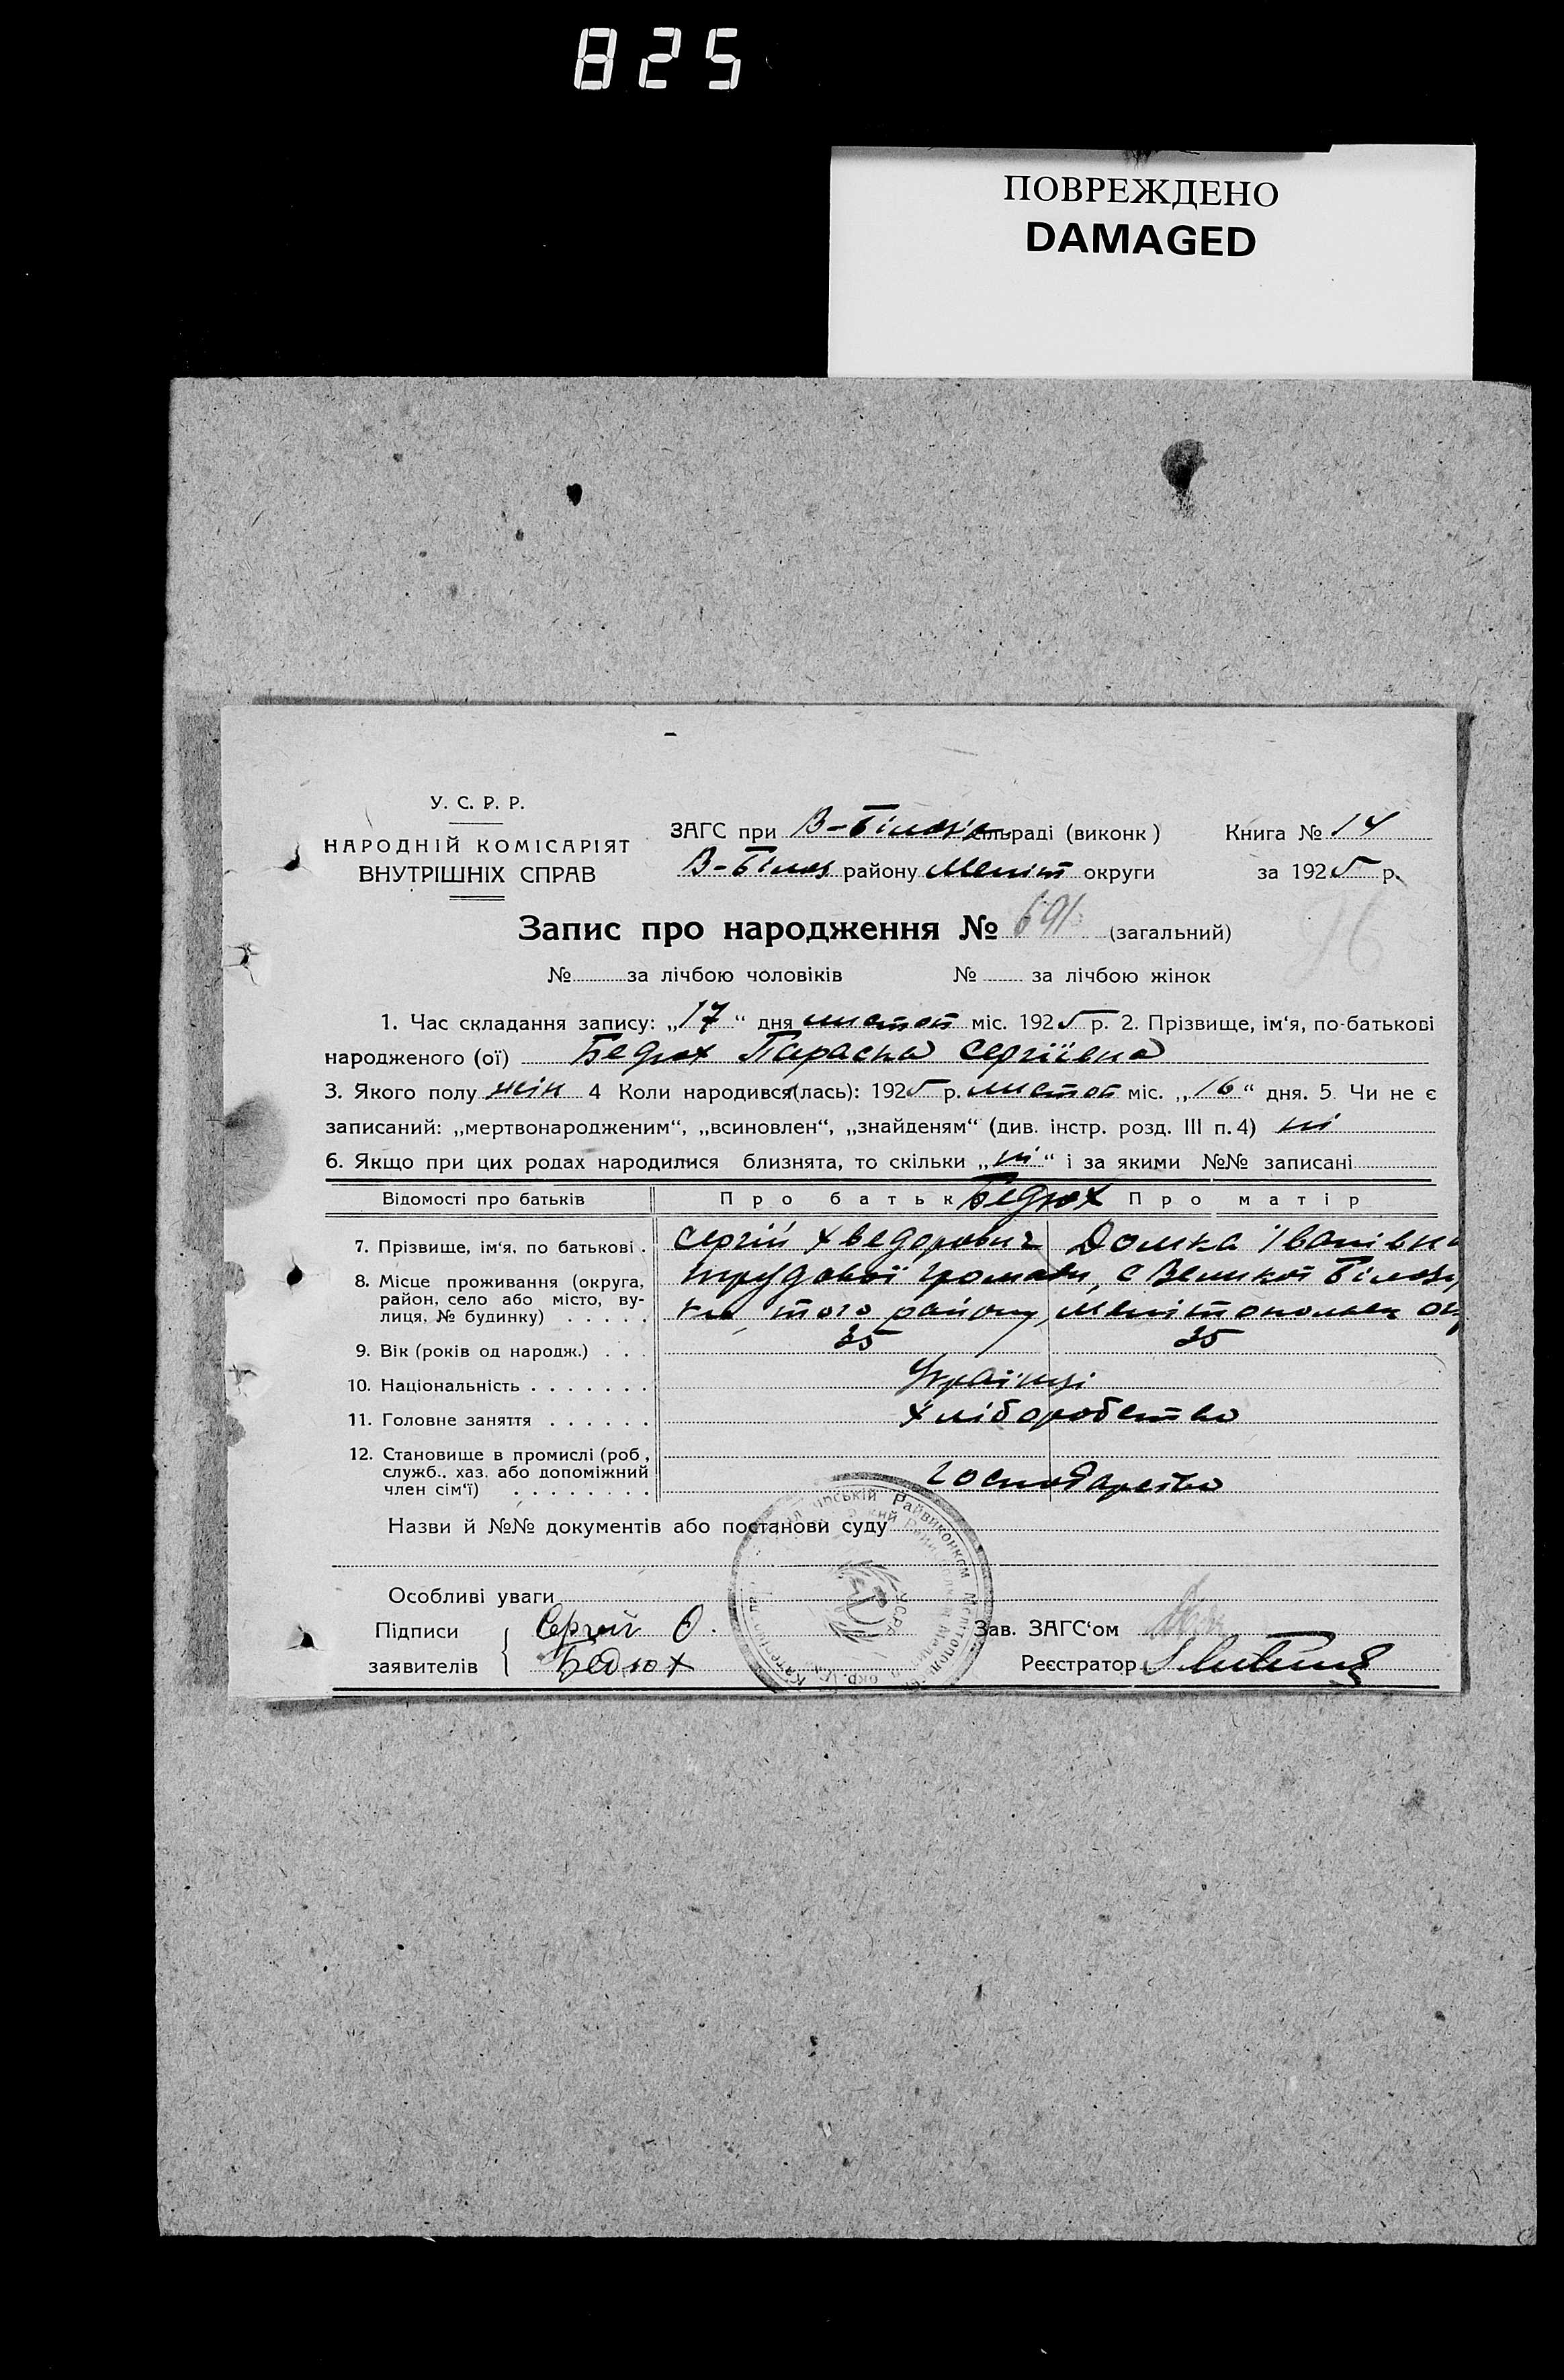 825
ПОВРЕЖДЕНО
DAMAGED
У. С. Р. Р.
НАРОДНІЙ КОМІСАРІЯТ
ВНУТРІШНІХ СПРАВ
ЗАГС при В-Білоз раді (виконк) Книга № 14
В-Білоз району Меліт округи за 1925 р.
Запис про народження № 691 (загальний)
96
№ за лічбою чоловіків № за лічбою жінок
1. Час складання запису: „17“ дня листоп міс. 1925 р. 2. Прізвище, ім‘я, по-батькові
народженого (ої) Бедюх Параска Сергіївна
3. Якого полу жін 4 Коли народився(лась): 1925 р. листоп міс. „16“ дня. 5. Чи не є
записаний: „мертвонародженим“, „всиновлен“, „знайденям“ (див. інстр. розд. III п. 4) ні
6. Якщо при цих родах народилися близнята, то скільки „ні“ і за якими №№ записані
Відомості про батьків Про батьк Бедюх Про матір
7. Прізвище, ім‘я, по батькові . Сергій Хведорович Домка Іванівн
8. Місце проживання (округа, трудової громади, с Великої Білозір
район, село або місто, ву-
лиця, № будинку) . . . . . ки того району, Мелітопольск ок
9. Вік (років од народж.) . . . 35 35
10. Національність . . . . . . . Українці
11. Головне заняття . . . . . . Хліборобство
12. Становище в промислі (роб.,
служб., хаз. або допоміжний
член сім‘ї) . . . . . . . . Господарство
Назви й №№ документів або постанови суду
Особливі уваги
Підписи Сергій О. Зав. ЗАГС‘ом
заявителів Бедюх Реєстратор
Райвиконком Мелітопол. окр.
У.С.Р.Р.